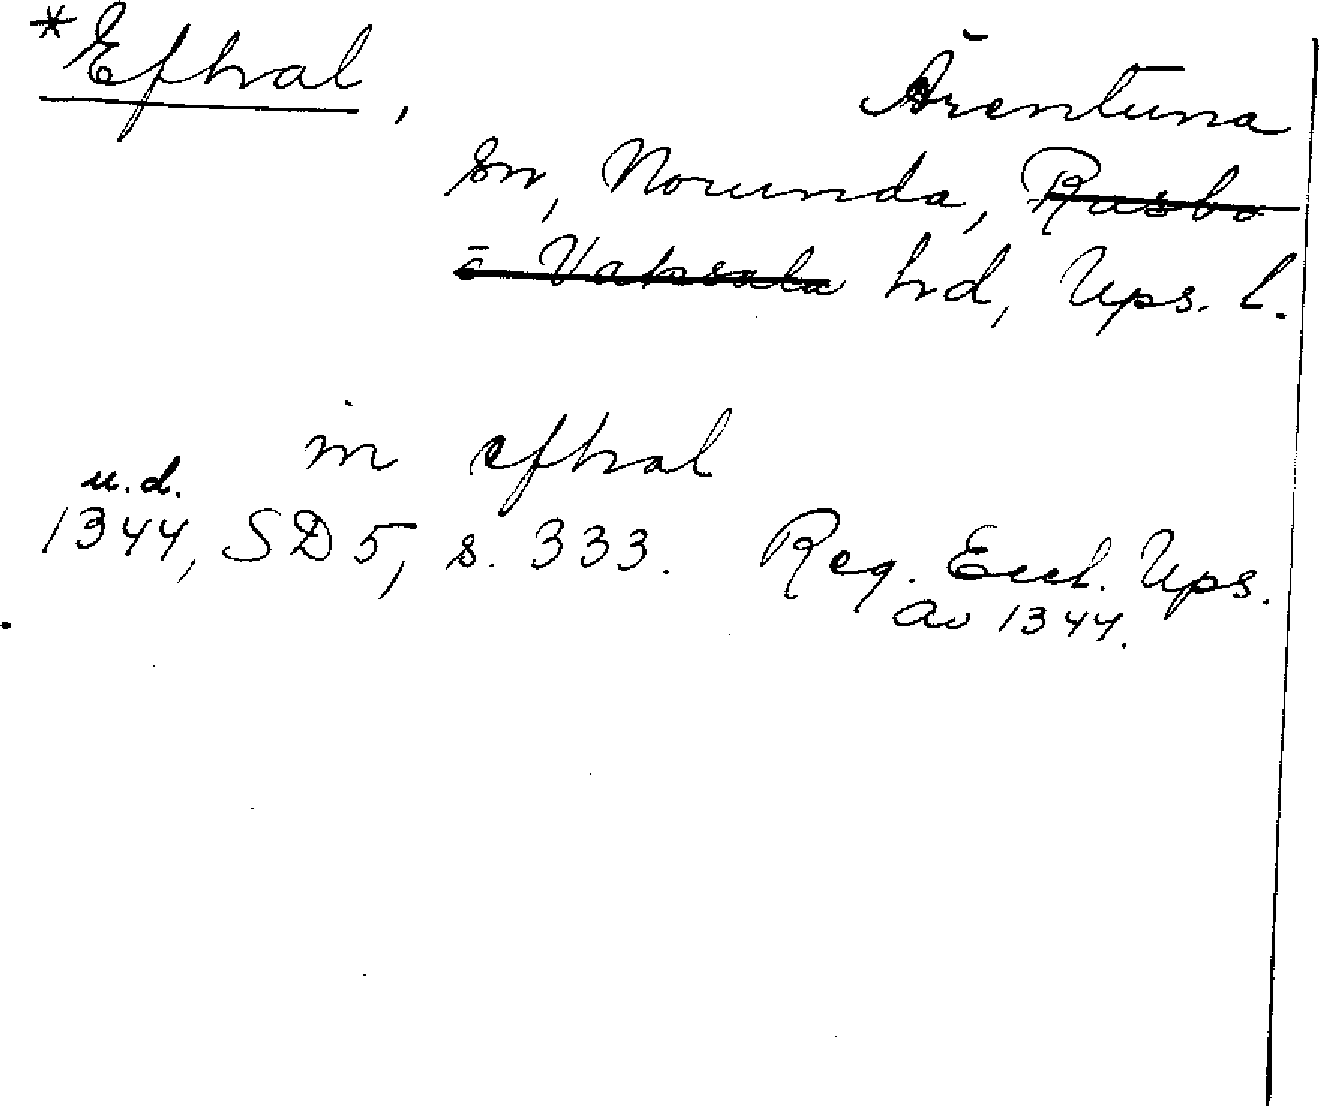 *Efhal, Ärentuna
sn, Norunda, Rasbo
o Vaksala hd, Ups. l.
in efhal
u.d.
1344, SD 5, s. 333. Reg. Eccl. Ups.
av 1344.